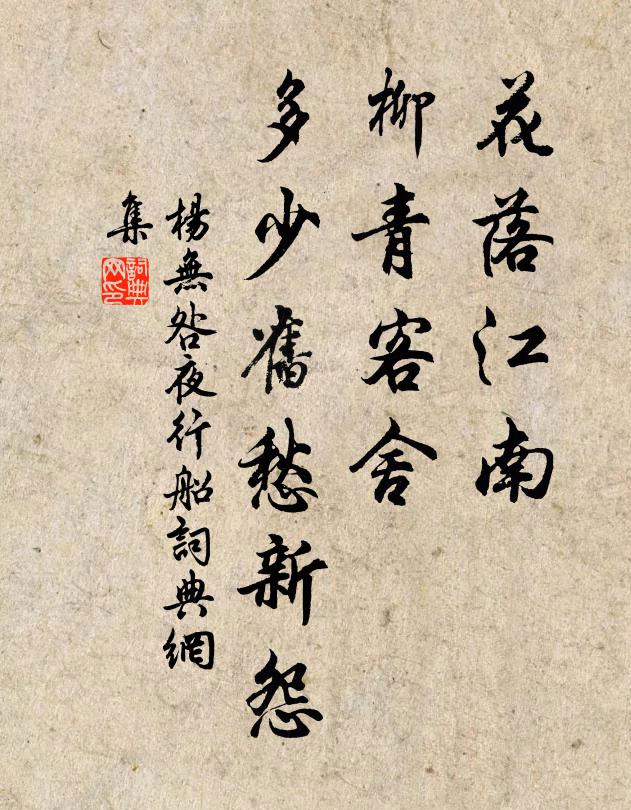 花落江南
柳青客舍
多少舊愁新怨
楊無咎夜行船詞典網
集
詞典
网印